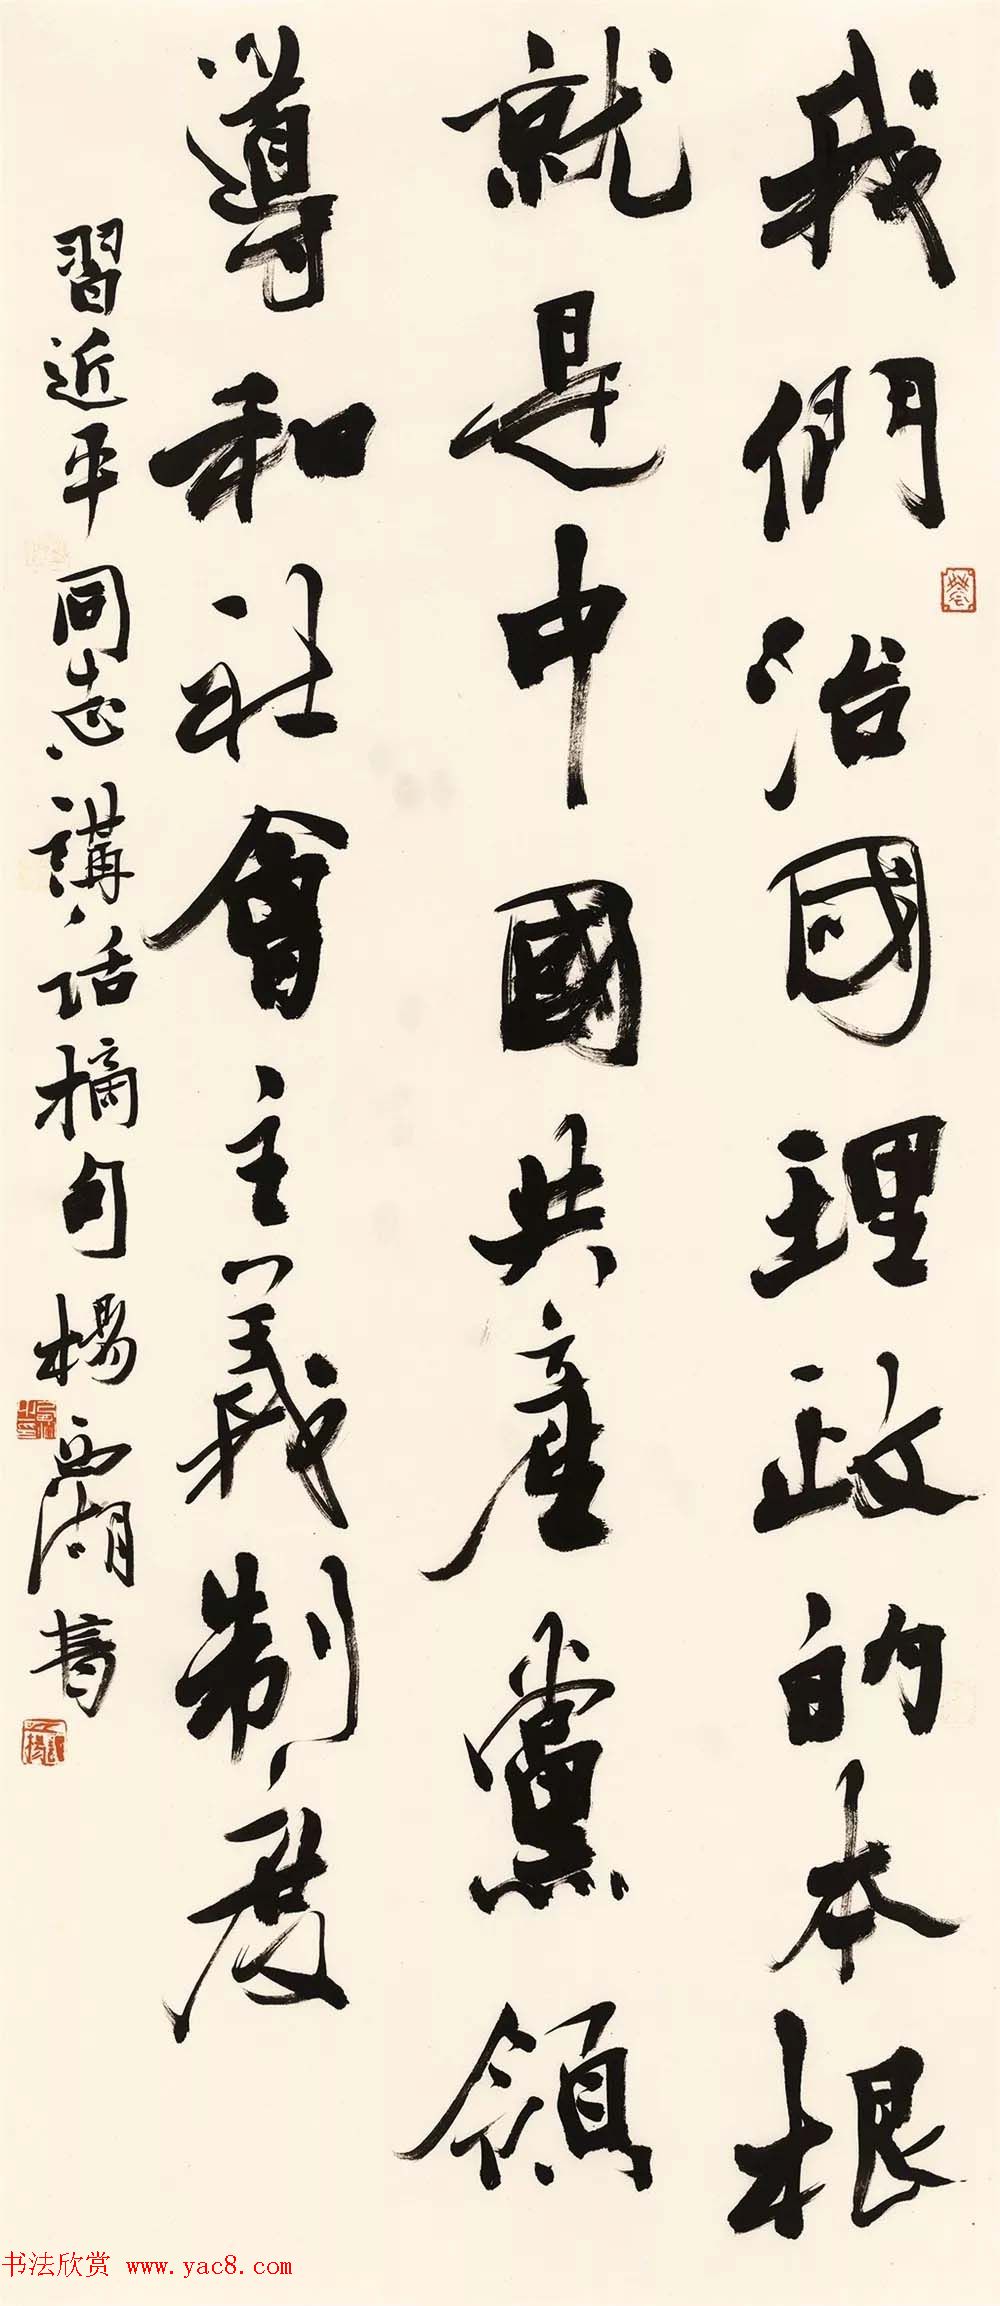 我們治國理政的本根
就是中國共產黨領
導和社會主義制度
習近平同志講話摘句 楊西湖書
书法欣赏 www.yac8.com